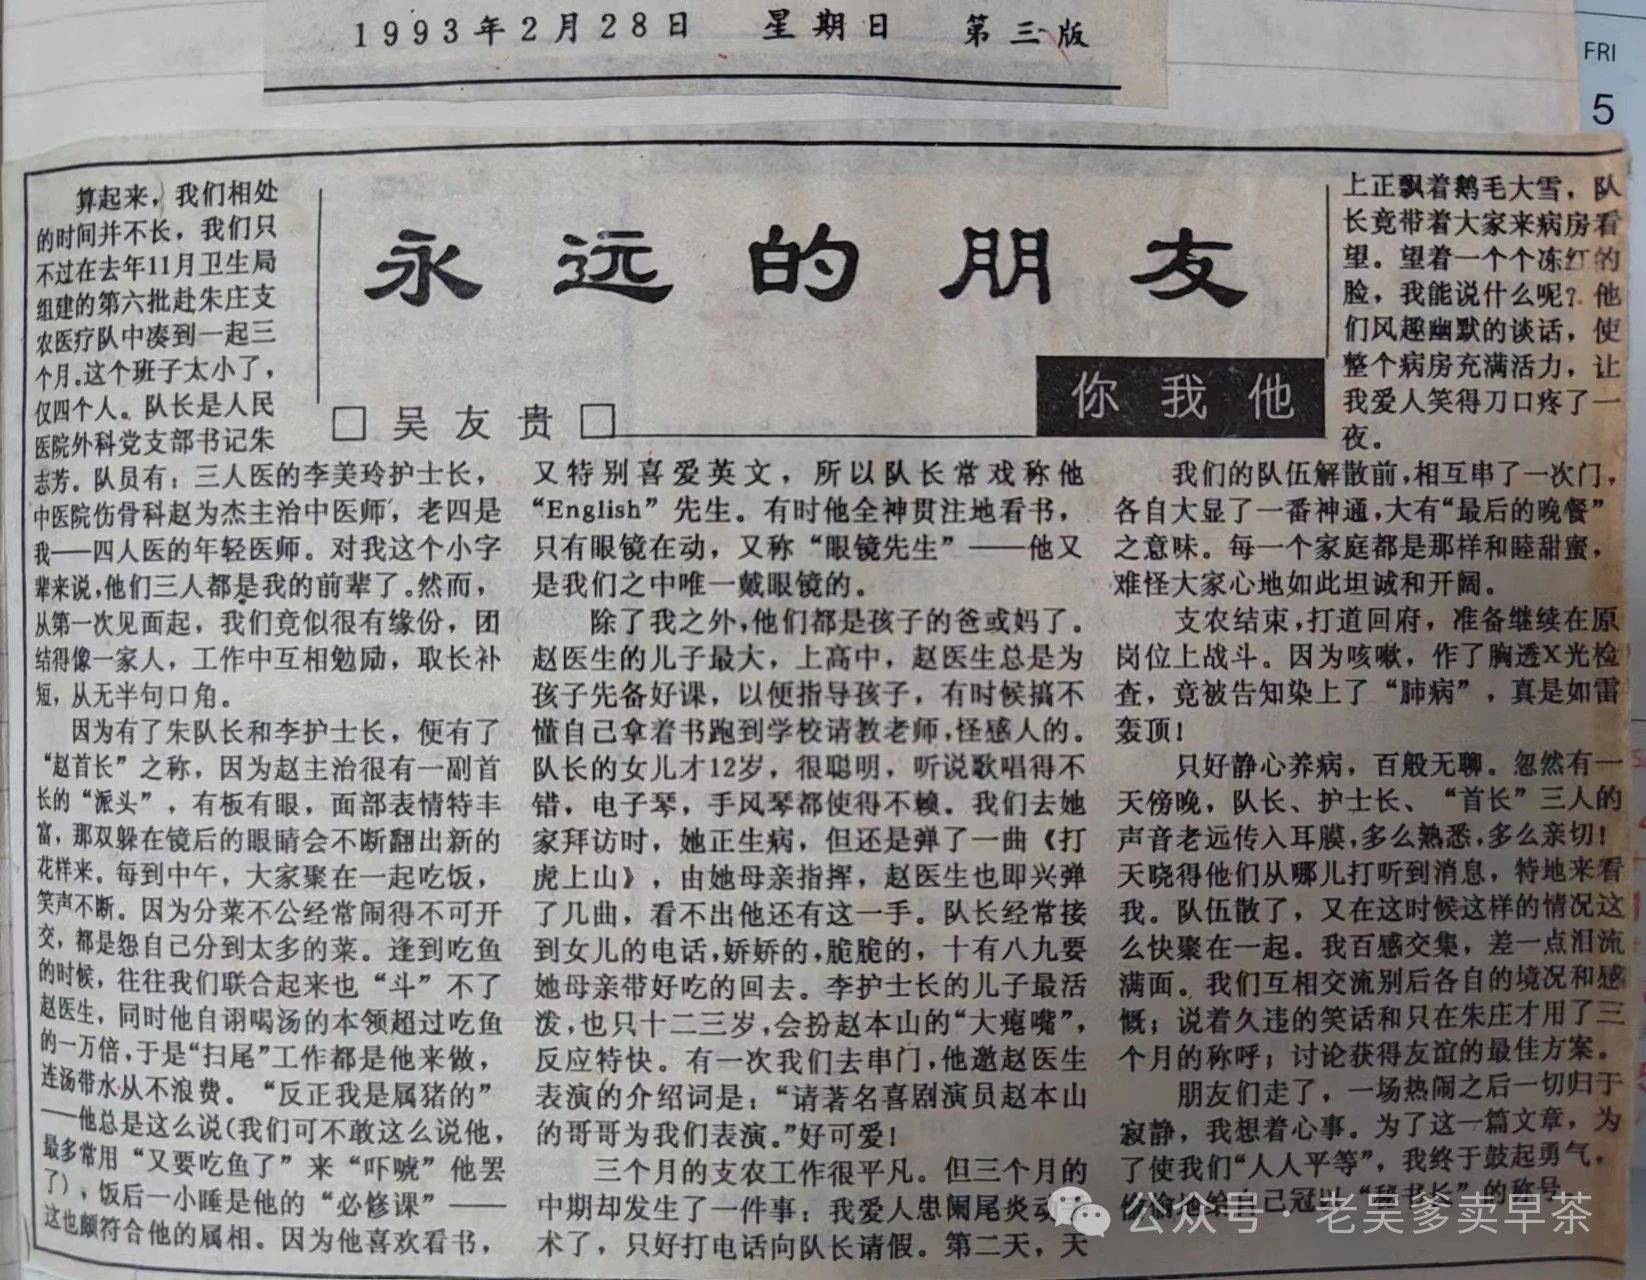 1993年2月28日 星期日 第三版
FRI
5
永远的朋友
□吴友贵□
你我他
算起来，我们相处
的时间并不长，我们只
不过在去年11月卫生局
组建的第六批赴朱庄支
农医疗队中凑到一起三
个月。这个班子太小了，
仅四个人。队长是人民
医院外科党支部书记朱
志芳。队员有：三人医的李美玲护士长，
中医院伤骨科赵为杰主治中医师，老四是
我——四人医的年轻医师。对我这个小字
辈来说，他们三人都是我的前辈了。然而，
从第一次见面起，我们竟似很有缘份，团
结得像一家人，工作中互相勉励，取长补
短，从无半句口角。
因为有了朱队长和李护士长，便有了
“赵首长”之称，因为赵主治很有一副首
长的“派头”，有板有眼，面部表情特丰
富，那双躲在镜后的眼睛会不断翻出新的
花样来。每到中午，大家聚在一起吃饭，
笑声不断。因为分菜不公经常闹得不可开
交，都是怨自己分到太多的菜。逢到吃鱼
的时候，往往我们联合起来也“斗”不了
赵医生，同时他自诩喝汤的本领超过吃鱼
的一万倍，于是“扫尾”工作都是他来做，
连汤带水从不浪费。“反正我是属猪的”
——他总是这么说（我们可不敢这么说他，
最多常用“又要吃鱼了”来“吓唬”他罢
了），饭后一小睡是他的“必修课”——
这也颇符合他的属相。因为他喜欢看书，
又特别喜爱英文，所以队长常戏称他
“English”先生。有时他全神贯注地看书，
只有眼镜在动，又称“眼镜先生”——他又
是我们之中唯一戴眼镜的。
除了我之外，他们都是孩子的爸或妈了。
赵医生的儿子最大，上高中，赵医生总是为
孩子先备好课，以便指导孩子，有时候搞不
懂自己拿着书跑到学校请教老师，怪感人的。
队长的女儿才12岁，很聪明，听说歌唱得不
错，电子琴，手风琴都使得不赖。我们去她
家拜访时，她正生病，但还是弹了一曲《打
虎上山》，由她母亲指挥，赵医生也即兴弹
了几曲，看不出他还有这一手。队长经常接
到女儿的电话，娇娇的，脆脆的，十有八九要
她母亲带好吃的回去。李护士长的儿子最活
泼，也只十二三岁，会扮赵本山的“大瘪嘴”，
反应特快。有一次我们去串门，他邀赵医生
表演的介绍词是：“请著名喜剧演员赵本山
的哥哥为我们表演。”好可爱！
三个月的支农工作很平凡。但三个月的
中期却发生了一件事：我爱人患阑尾炎动手
术了，只好打电话向队长请假。第二天，天
上正飘着鹅毛大雪，队
长竟带着大家来病房看
望。望着一个个冻红的
脸，我能说什么呢？他
们风趣幽默的谈话，使
整个病房充满活力，让
我爱人笑得刀口疼了一
夜。
我们的队伍解散前，相互串了一次门，
各自大显了一番神通，大有“最后的晚餐”
之意味。每一个家庭都是那样和睦甜蜜，
难怪大家心地如此坦诚和开阔。
支农结束，打道回府，准备继续在原
岗位上战斗。因为咳嗽，作了胸透X光检
查，竟被告知染上了“肺病”，真是如雷
轰顶！
只好静心养病，百般无聊。忽然有一
天傍晚，队长、护士长、“首长”三人的
声音老远传入耳膜，多么熟悉，多么亲切！
天晓得他们从哪儿打听到消息，特地来看
我。队伍散了，又在这时候这样的情况这
么快聚在一起。我百感交集，差一点泪流
满面。我们互相交流别后各自的境况和感
慨；说着久违的笑话和只在朱庄才用了三
个月的称呼；讨论获得友谊的最佳方案。
朋友们走了，一场热闹之后一切归于
寂静，我想着心事。为了这一篇文章，为
了使我们“人人平等”，我终于鼓起勇气，
偷偷地给自己冠以“秘书长”的称号。
公众号·老吴爹卖早茶